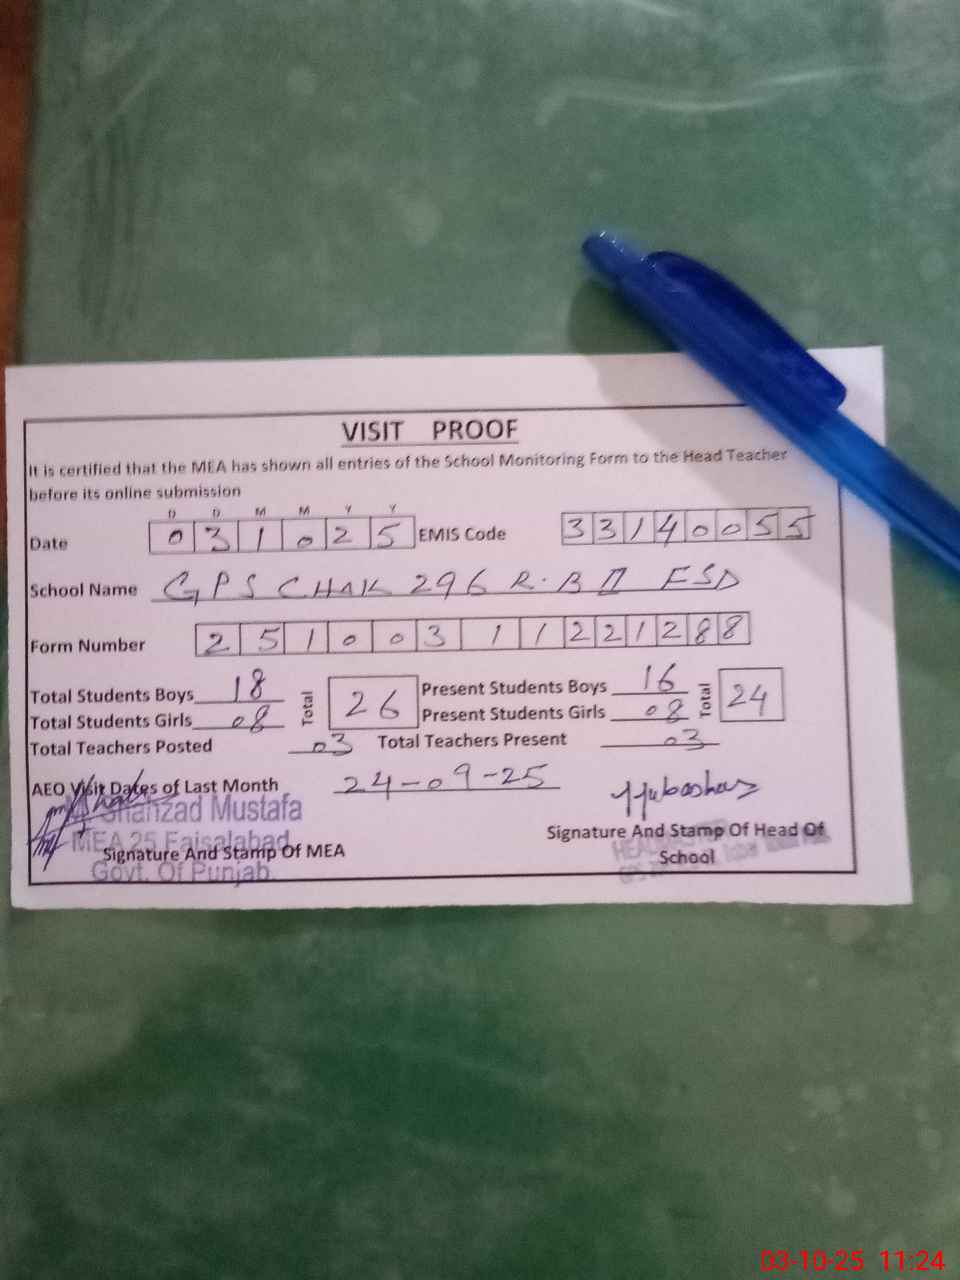 VISIT PROOF
It is certified that the MEA has shown all entries of the School Monitoring Form to the Head Teacher
before its online submission
D D M M Y Y
Date 0 3 1 0 2 5 EMIS Code 3 3 1 4 0 0 5 5
School Name GPS CHAK 296 R.B II FSD
Form Number 2 5 1 0 0 3 1 1 2 2 1 2 8 8
Total Students Boys 18 Total 26 Present Students Boys 16 Total 24
Total Students Girls 08 Present Students Girls 08
Total Teachers Posted 03 Total Teachers Present 03
AEO Visit Dates of Last Month 24-09-25
Shahzad Mustafa
MEA 25 Faisalabad
Govt. Of Punjab
Signature And Stamp Of MEA
Signature And Stamp Of Head Of
School
03-10-25 11:24